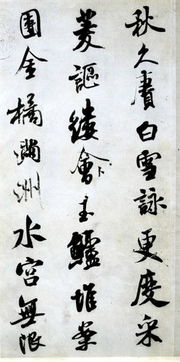 秋久賡白雪詠更度采
菱謳縷會玉鱸堆案
團金橘滿洲水宮無限